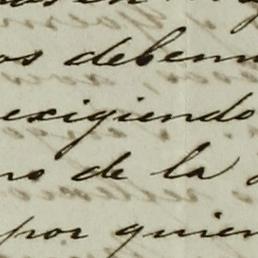 os debem
exigiendo
de la
por quien